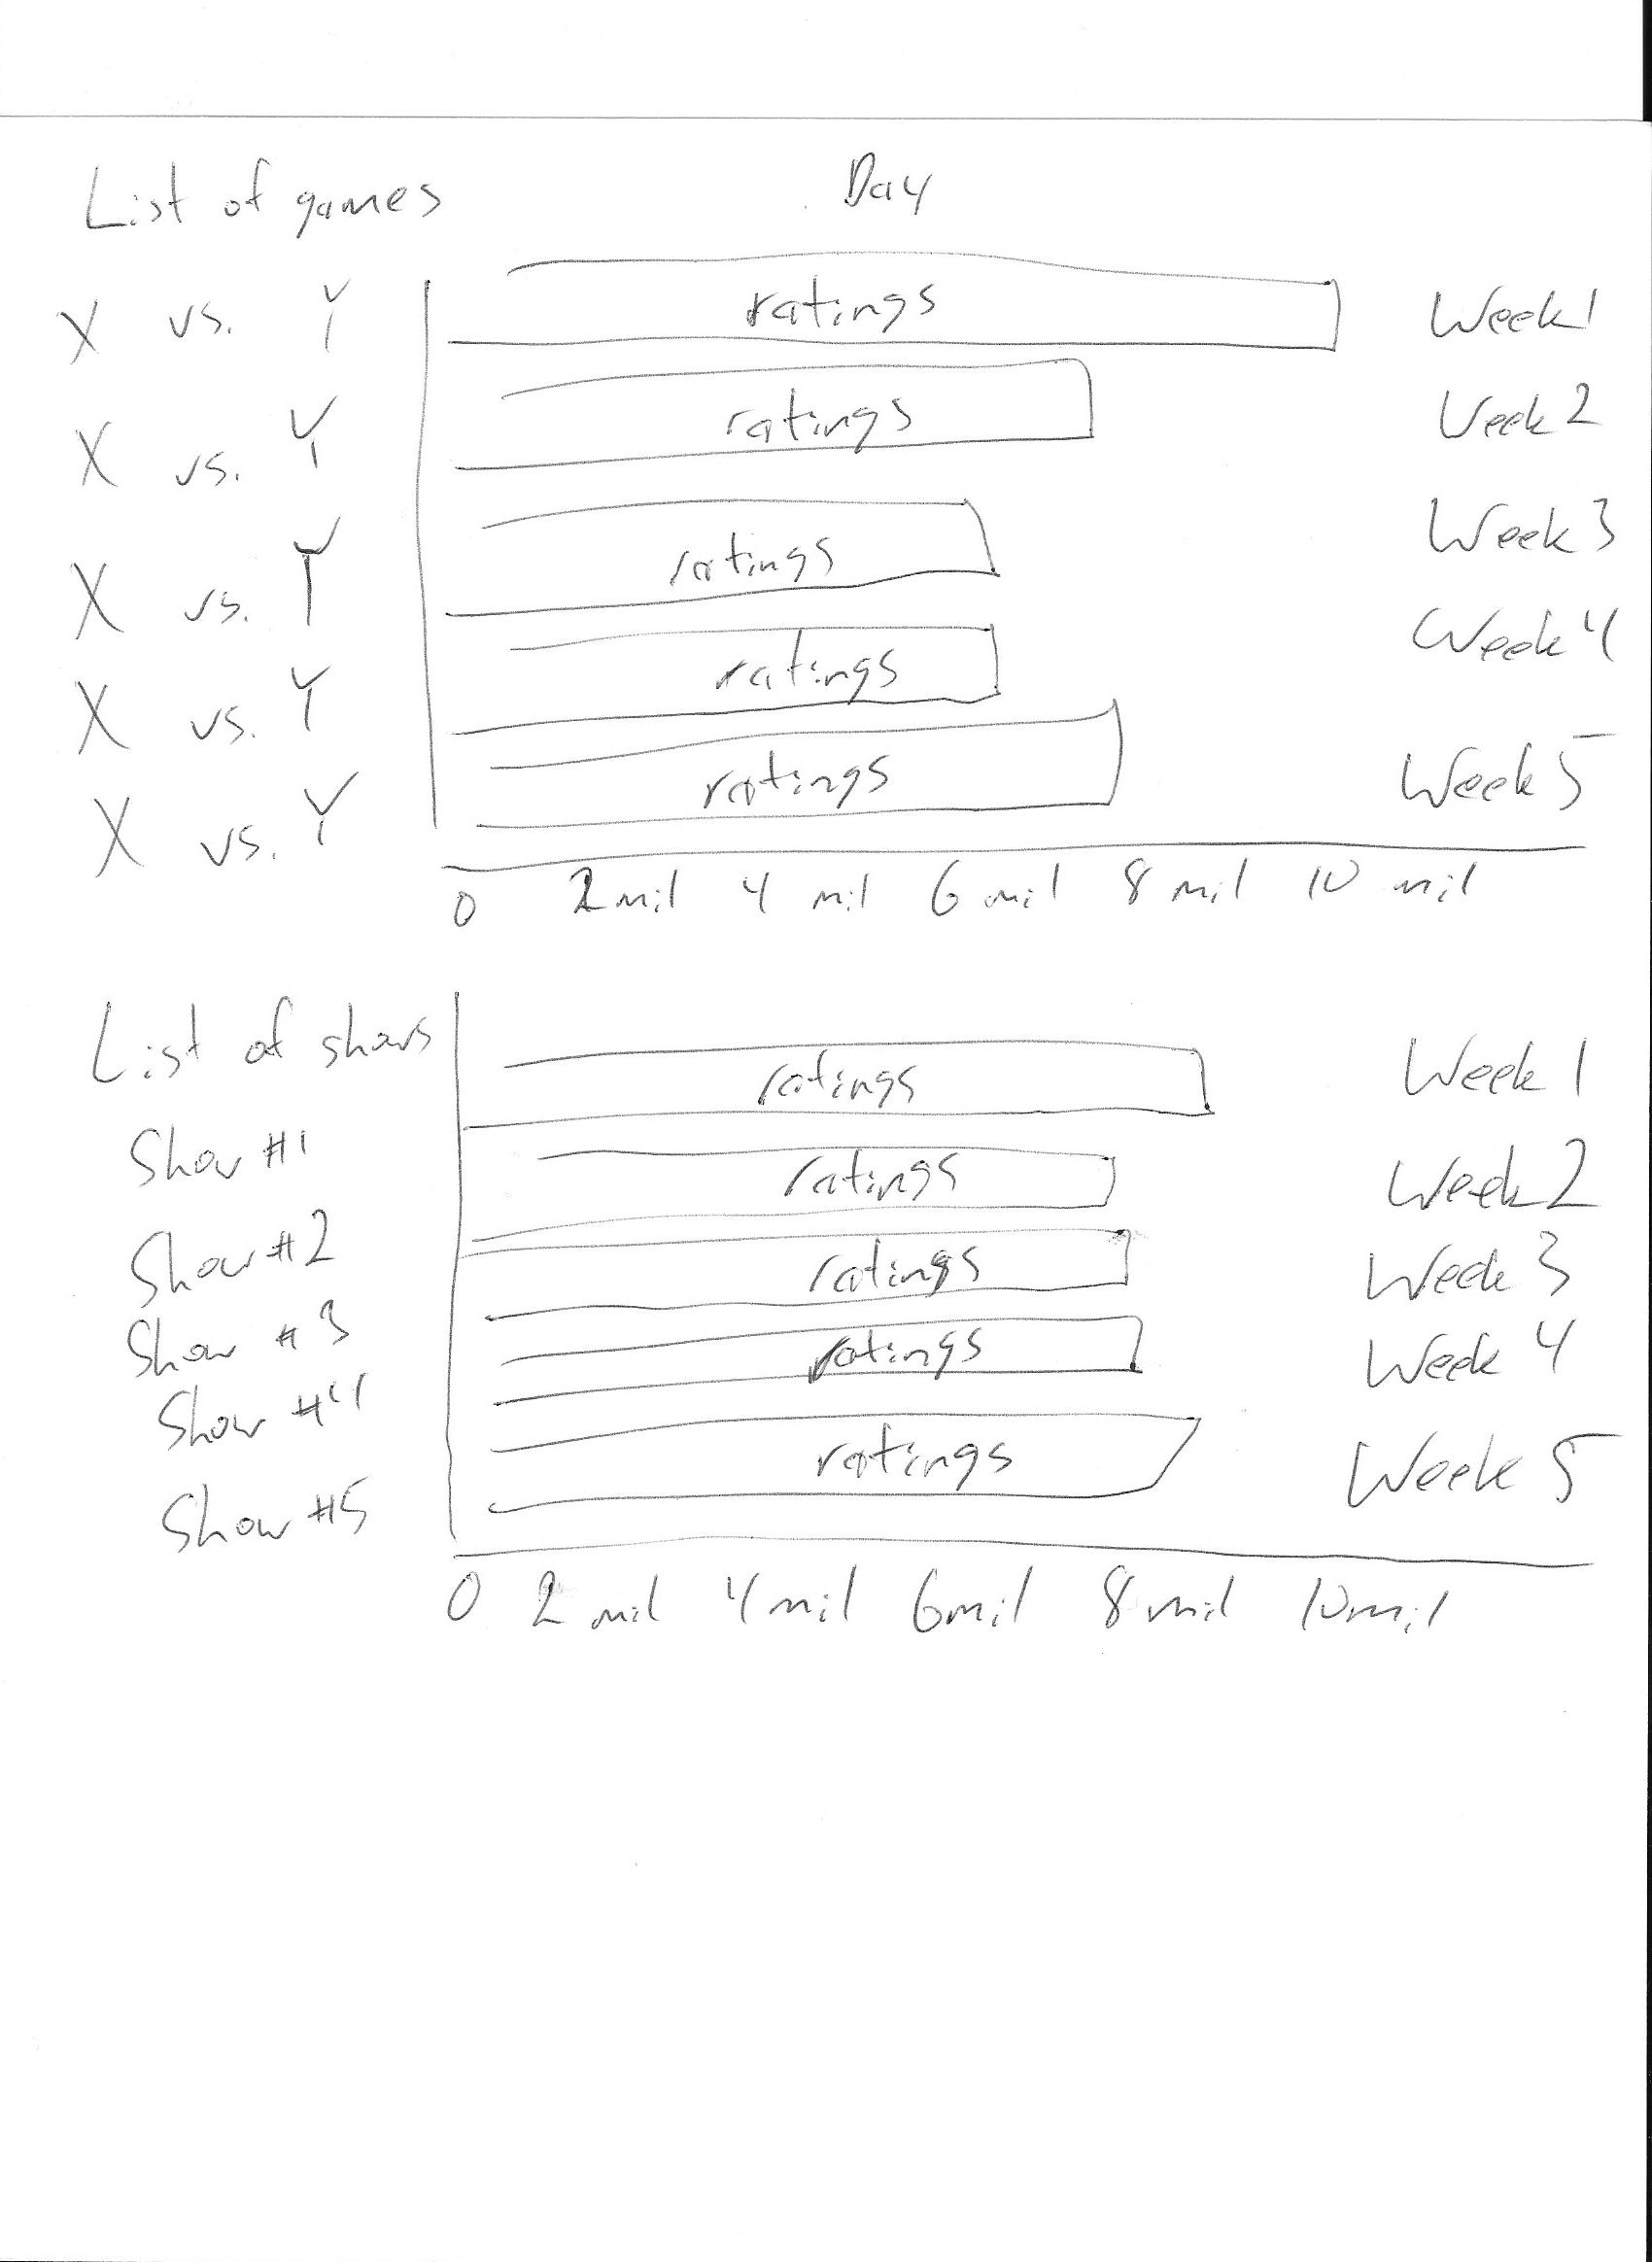 List of games Day
X vs. Y ratings Week 1
X vs. Y ratings Week 2
X vs. Y ratings Week 3
X vs. Y ratings Week 4
X vs. Y ratings Week 5
0 2 mil 4 mil 6 mil 8 mil 10 mil
List of shows ratings Week 1
Show #1 ratings Week 2
Show #2 ratings Week 3
Show #3 ratings Week 4
Show #4 ratings Week 5
Show #5
0 2 mil 4 mil 6 mil 8 mil 10 mil